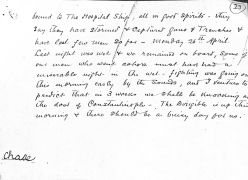 23
bound to The Hospital Ship, all in good spirits - they
say they have stormed & captured guns & Trenches &
have lost few men so far - Monday 26th April
Last night was wet & we remained on board, some of
our men who went ashore must have had a
miserable night in the wet. fighting was going on
this morning early by the sounds, and I venture to
predict that in 3 weeks we shall be knocking at
the door of Constantinople - The Dirigible is up this
morning & there should be a busy day but no.
Chase